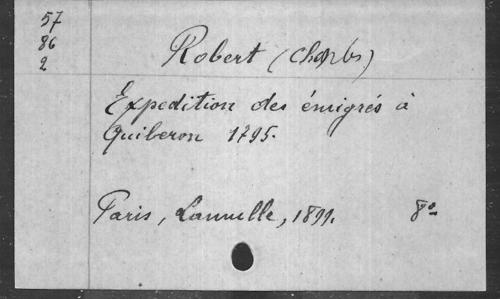 57
86
2
Robert (Charles)
Expedition des émigrés à
Quiberon 1795.
Paris, Lamulle, 1899. 8º